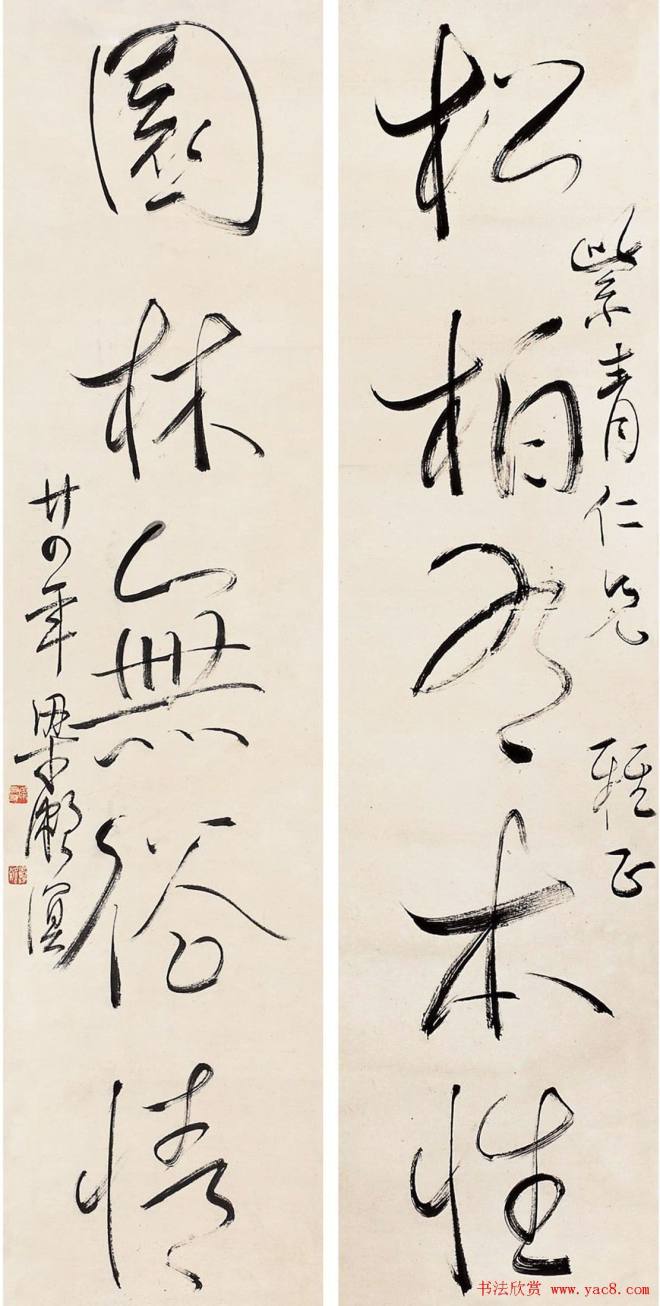 松柏有本性
紫青仁兄 雅正
園林無俗情
廿四年 梁
书法欣赏 www.yac8.com